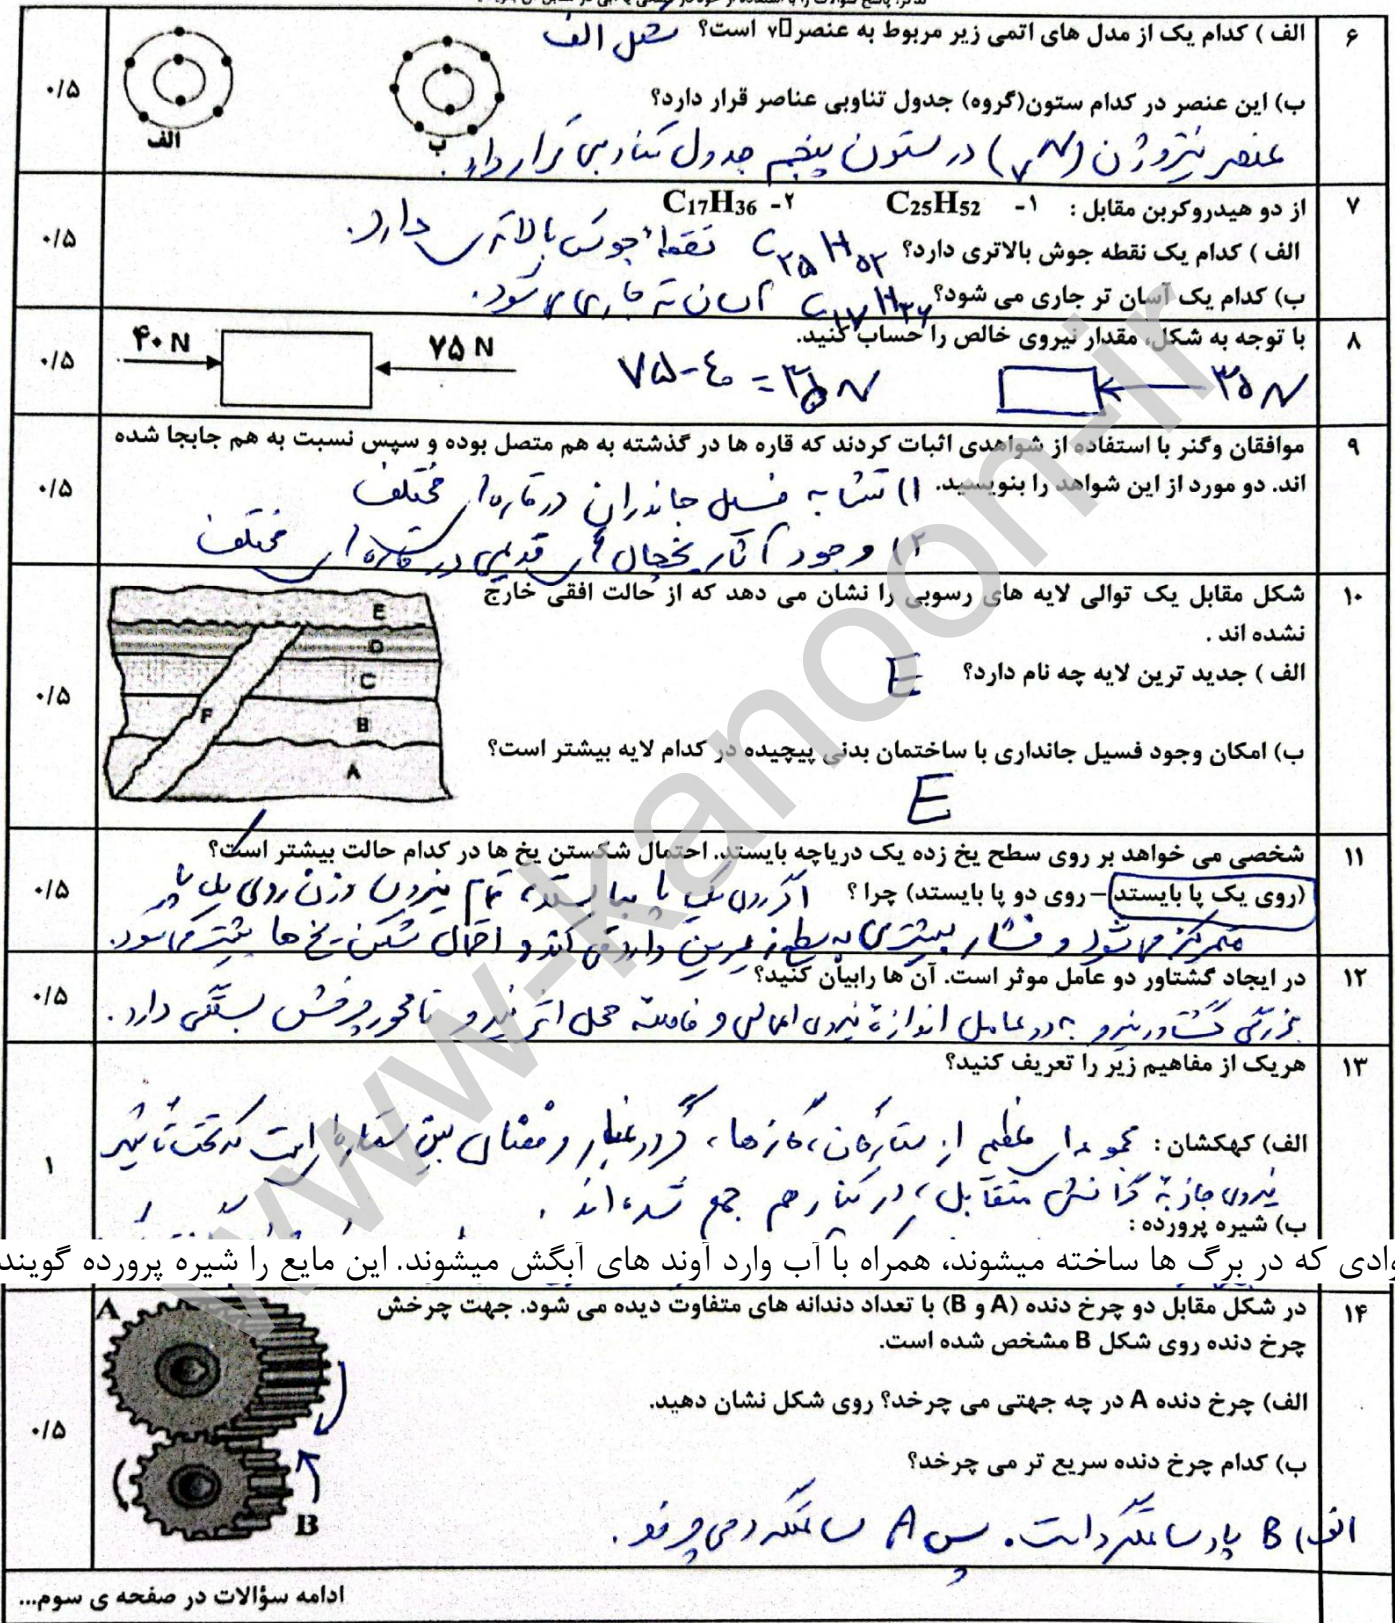 ۶ الف ) کدام یک از مدل های اتمی زیر مربوط به عنصر ۷ است؟ شکل الف
ب) این عنصر در کدام ستون(گروه) جدول تناوبی عناصر قرار دارد؟
الف
ب
۰/۵
عنصر نیتروژن (₇N) در ستون پنجم جدول تناوبی قرار دارد.
۷ از دو هیدروکربن مقابل : ۱- C25H52 ۲- C17H36
الف ) کدام یک نقطه جوش بالاتری دارد؟ C۲۵H۵۲ نقطه جوش بالاتری دارد.
ب) کدام یک آسان تر جاری می شود؟ C۱۷H۳۶ آسان تر جاری می شود.
۰/۵
۸ با توجه به شکل، مقدار نیروی خالص را حساب کنید.
۴۰ N
۷۵ N
۷۵-۴۰ = ۳۵ N
۳۵ N
۰/۵
۹ موافقان وگنر با استفاده از شواهدی اثبات کردند که قاره ها در گذشته به هم متصل بوده و سپس نسبت به هم جابجا شده
اند. دو مورد از این شواهد را بنویسید. ۱) تشابه فسیل جانداران در قاره های مختلف
۲) وجود آثار یخچال های قدیمی در قاره های مختلف
۰/۵
۱۰ شکل مقابل یک توالی لایه های رسوبی را نشان می دهد که از حالت افقی خارج
نشده اند .
الف ) جدید ترین لایه چه نام دارد؟ E
ب) امکان وجود فسیل جانداری با ساختمان بدنی پیچیده در کدام لایه بیشتر است؟
E
E
D
C
F
B
A
۰/۵
۱۱ شخصی می خواهد بر روی سطح یخ زده یک دریاچه بایستد. احتمال شکستن یخ ها در کدام حالت بیشتر است؟
(روی یک پا بایستد – روی دو پا بایستد) چرا ؟ اگر روی یک پا بایستد، تمام نیروی وزن روی یک پا
متمرکز می شود و فشار بیشتری به سطح زیرین وارد می کند و احتمال شکستن یخ ها بیشتر می شود.
۰/۵
۱۲ در ایجاد گشتاور دو عامل موثر است. آن ها رابیان کنید؟
بزرگی گشتاور نیرو به دو عامل اندازه نیروی اعمالی و فاصله محل اثر نیرو تا محور چرخش بستگی دارد.
۰/۵
۱۳ هریک از مفاهیم زیر را تعریف کنید؟
الف) کهکشان : مجموعه ای عظیم از ستارگان، گازها، گرد و غبار و فضای بین ستاره ای است که تحت تأثیر
نیروی جاذبه گرانش متقابل، در کنار هم جمع شده اند.
ب) شیره پرورده :
وادی که در برگ ها ساخته میشوند، همراه با آب وارد آوند های آبگش میشوند. این مایع را شیره پرورده گویند
۱
۱۴ در شکل مقابل دو چرخ دنده (A و B) با تعداد دندانه های متفاوت دیده می شود. جهت چرخش
چرخ دنده روی شکل B مشخص شده است.
الف) چرخ دنده A در چه جهتی می چرخد؟ روی شکل نشان دهید.
ب) کدام چرخ دنده سریع تر می چرخد؟
A
B
۰/۵
الف) B پادساعتگرد است. پس A ساعتگرد می چرخد.
ادامه سؤالات در صفحه ی سوم...
www-kanoon-ir